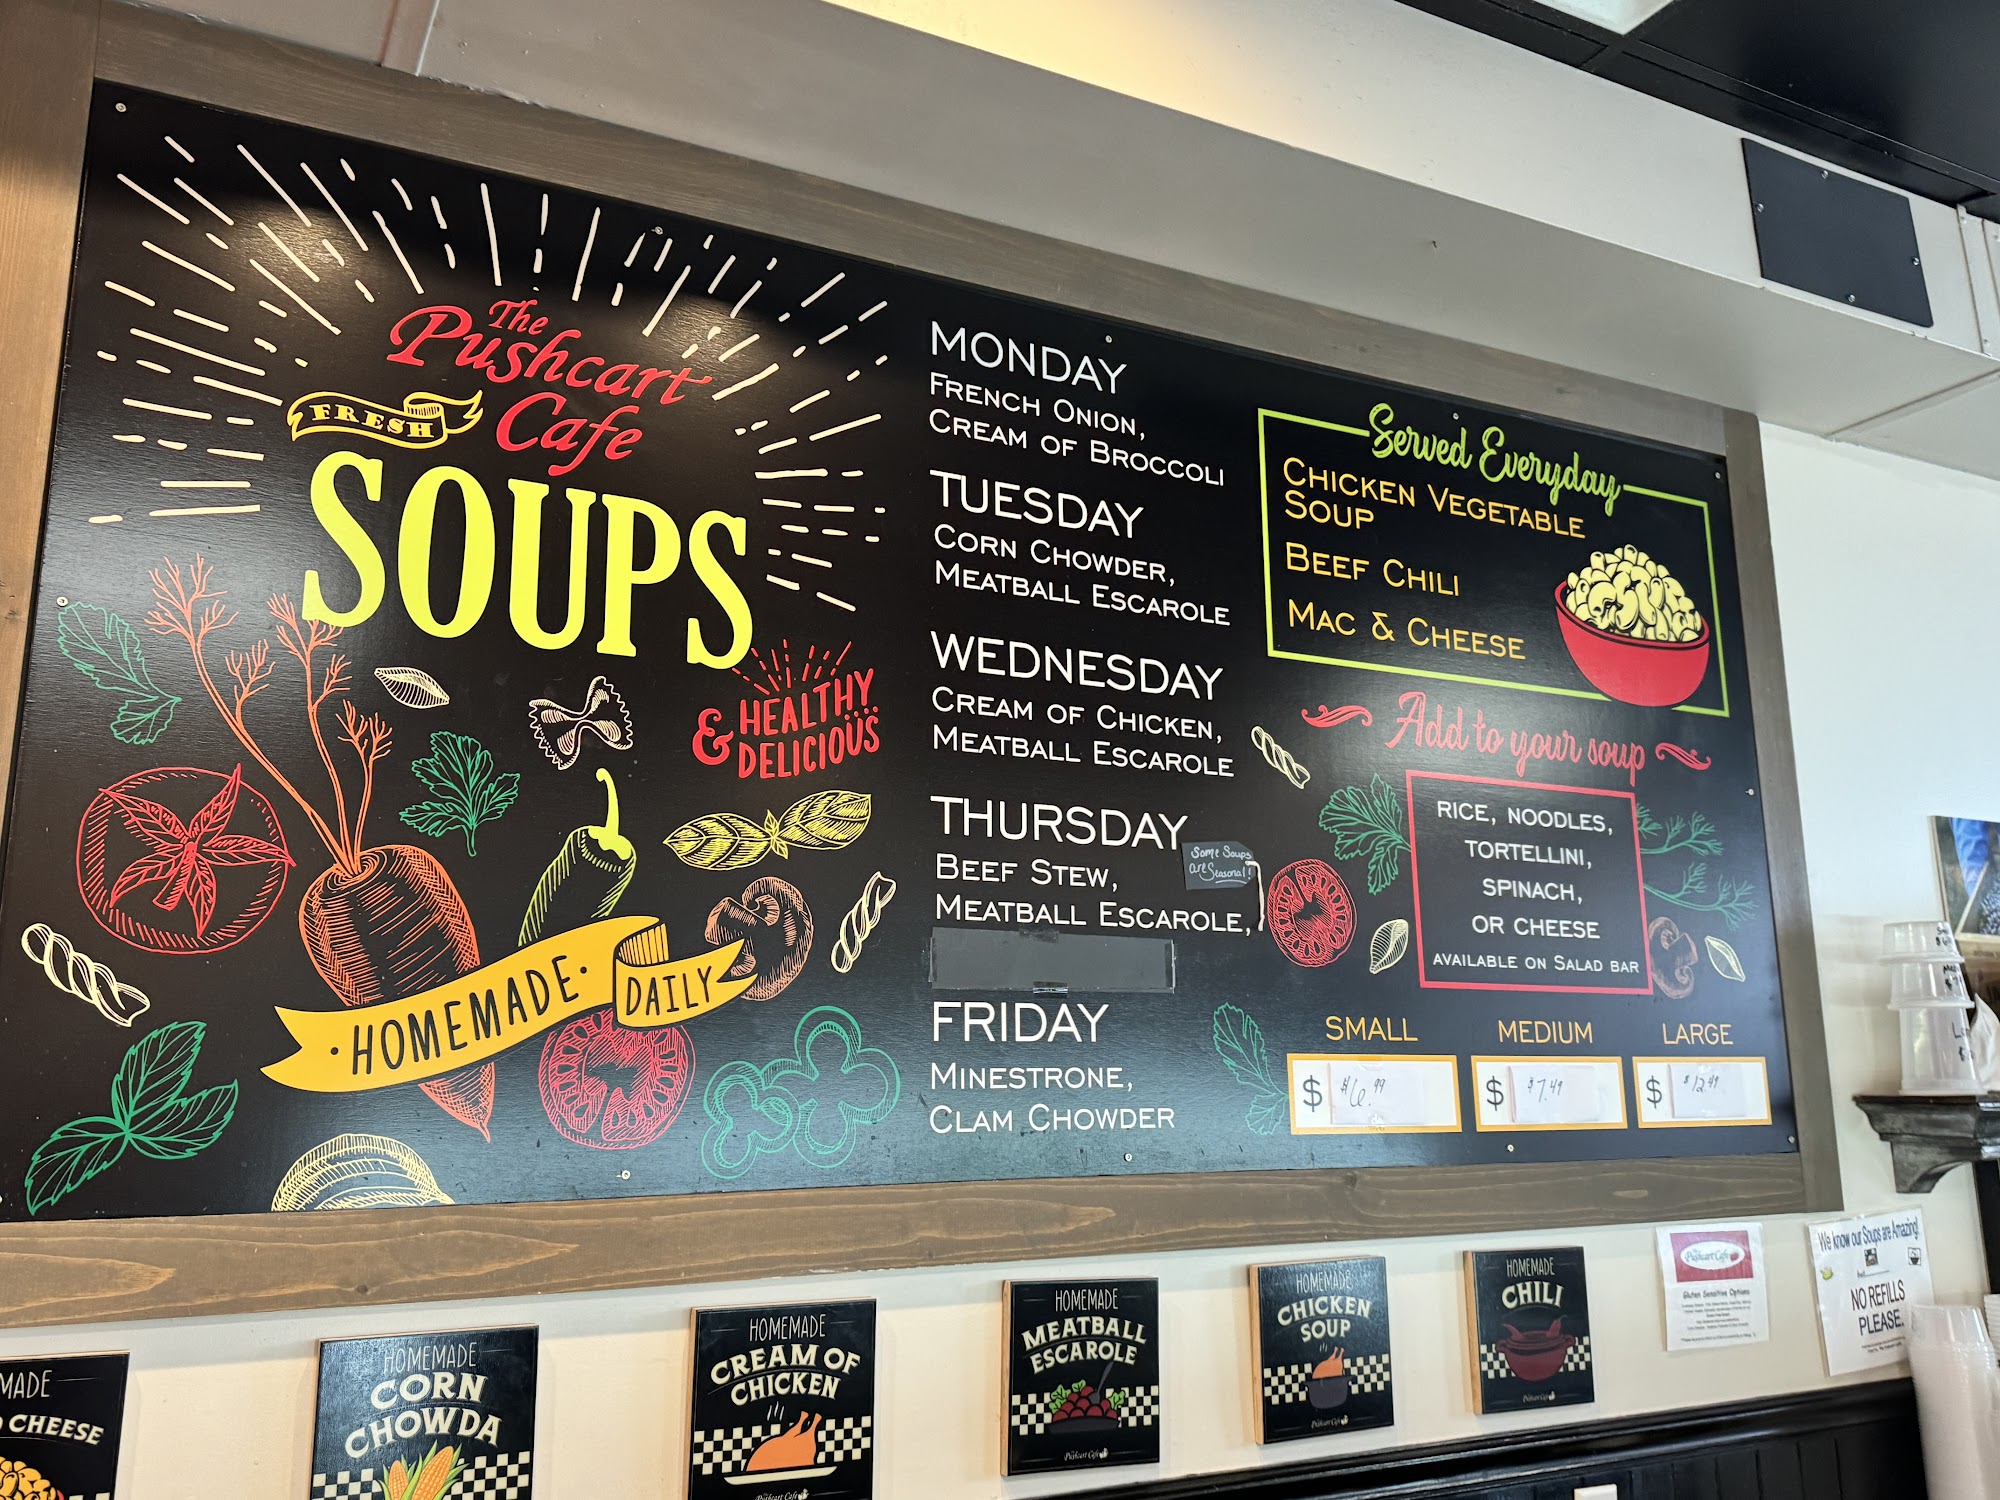 The
Pushcart
Cafe
FRESH
SOUPS
& HEALTHY
DELICIOUS
· HOMEMADE · DAILY
MONDAY
FRENCH ONION,
CREAM OF BROCCOLI
TUESDAY
CORN CHOWDER,
MEATBALL ESCAROLE
WEDNESDAY
CREAM OF CHICKEN,
MEATBALL ESCAROLE
THURSDAY
BEEF STEW,
MEATBALL ESCAROLE,
Some Soups
are Seasonal!
FRIDAY
MINESTRONE,
CLAM CHOWDER
Served Everyday
CHICKEN VEGETABLE
SOUP
BEEF CHILI
MAC & CHEESE
Add to your soup
RICE, NOODLES,
TORTELLINI,
SPINACH,
OR CHEESE
AVAILABLE ON SALAD BAR
SMALL MEDIUM LARGE
$ $6.99 $ $7.49 $ $12.49
MADE
CHEESE
HOMEMADE
CORN
CHOWDA
HOMEMADE
CREAM OF
CHICKEN
Pushcart Cafe
HOMEMADE
MEATBALL
ESCAROLE
Pushcart Cafe
HOMEMADE
CHICKEN
SOUP
Pushcart Cafe
HOMEMADE
CHILI
Pushcart Cafe
Pushcart Cafe
Gluten Sensitive Options
We know our Soups are Amazing!
NO REFILLS
PLEASE.